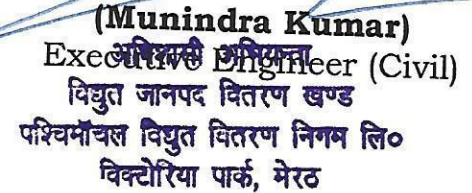 (Munindra Kumar)
Executive Engineer (Civil)
अधिशासी अभियन्ता
विद्युत जानपद वितरण खण्ड
पश्चिमॉचल विद्युत वितरण निगम लि०
विक्टोरिया पार्क, मेरठ